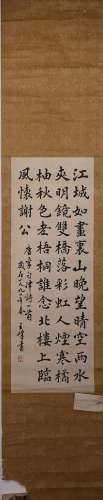 江城如畫裏山晚望晴空兩水
夾明鏡雙橋落彩虹人煙寒橘
柚秋色老梧桐誰念北樓上臨
風懷謝公
唐李白律詩一首